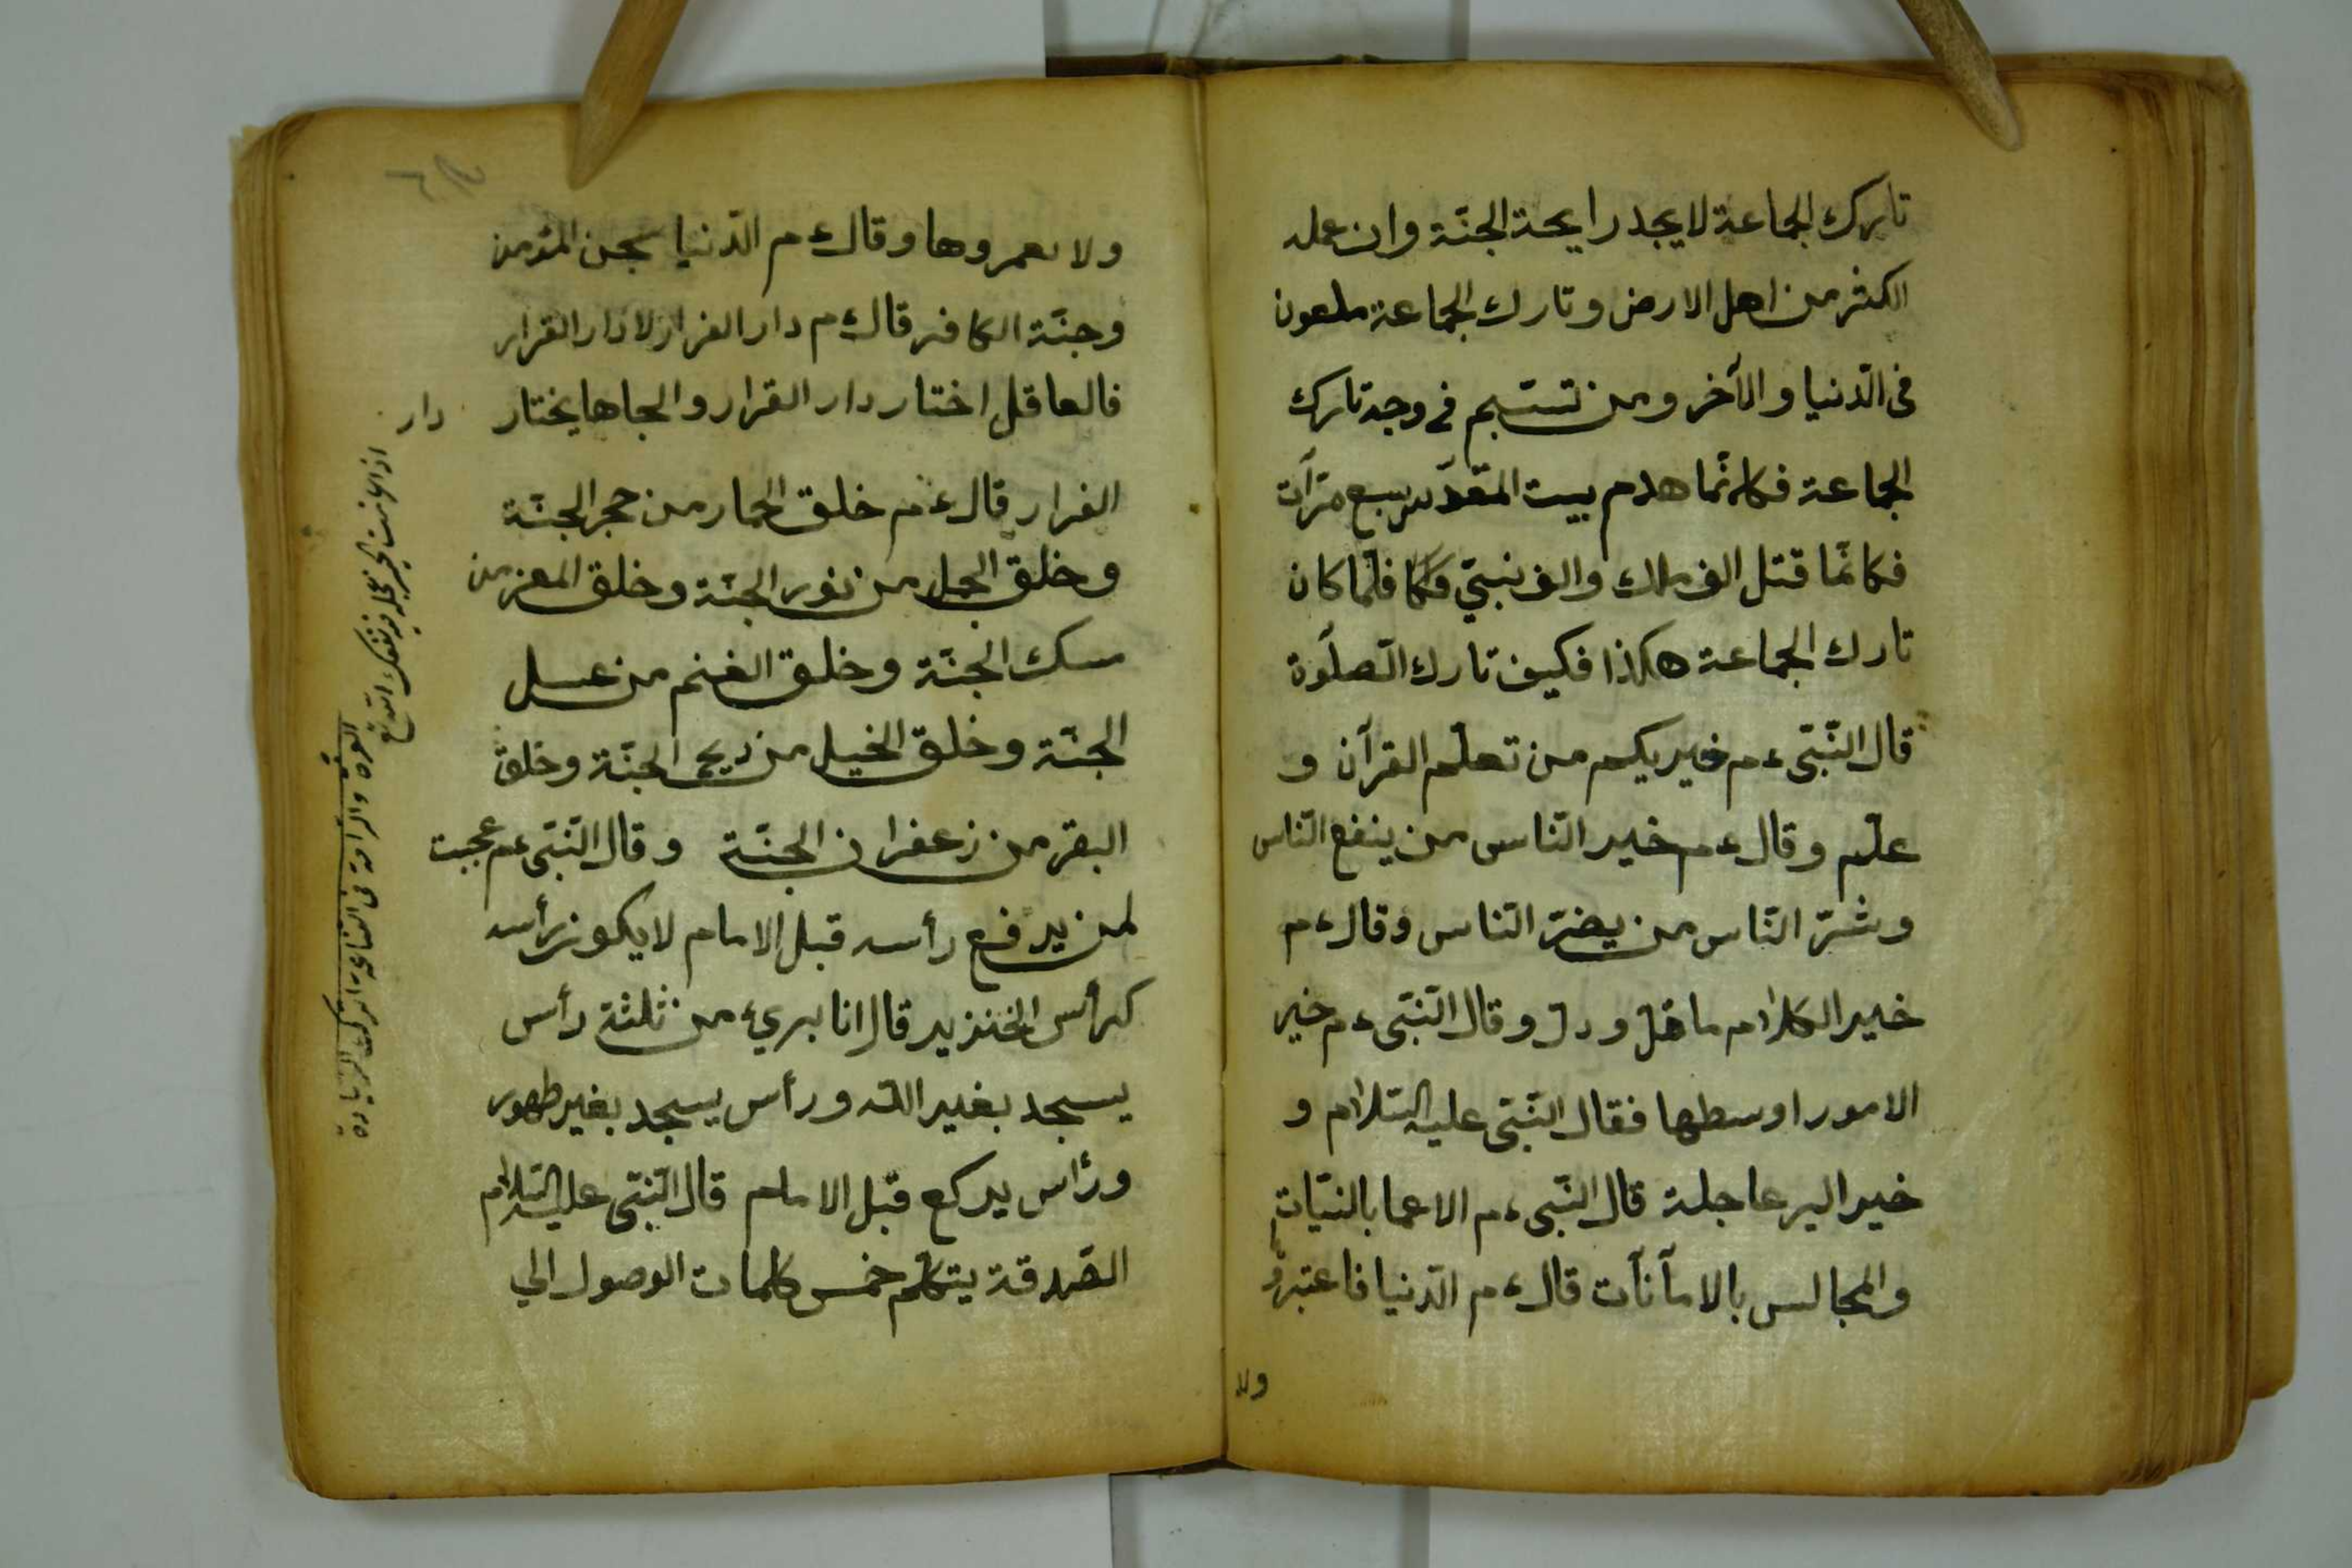 تارك الجماعة لا يجد رايحة الجنّة وان عمله
اكثر من اهل الارض وتارك الجماعة ملعون
فى الدّنيا والآخر ومن تبسّم فى وجه تارك
الجماعة فكانّما هدم بيت المقدّس سبع مرّآت
فكانّما قتل الف ملك والف نبىّ فلمّا كان
تارك الجماعة هكذا فكيف تارك الصّلوة
قال النّبى ءم خيريكم من تعلّم القرآن و
علّم وقال ءم خير النّاس من ينفع النّاس
وشرّ النّاس من يضرّ النّاس وقال ءم
خير الكلام ما قلّ ودلّ وقال النّبى ءم خير
الامور اوسطها فقال النّبى عليه السّلام و
خير البر عاجلة قال النّبى ءم الاعما بالنيّات
والمجالس بالامآنآت قال ءم الدّنيا فاعتبروُ
ولا
ولا يعمروها وقال ءم الدّنيا سجن المؤمن
وجنّة الكافر قال ءم دار الفرار لا دار القرار
فالعاقل اختار دار القرار والجاها يختار دار
الفرار قال ءم خلق الحمار من حجر الجنّة
وخلق الجمل من نور الجنّة وخلق المعز من
مسك الجنّة وخلق الغنم من عسل
الجنّة وخلق الخيل من ريح الجنّة وخلق
البقر من زعفران الجنّة وقال النّبى عم عجبت
لمن يرفع رأسه قبل الامام لا يكون رأسه
كرأس الخنزير قال انا بريء من ثلثة رأس
يسجد بغير اللّه ورأس يسجد بغير طهور
ورأس يركع قبل الامام قال النّبى عليه السّلام
الصّدقة يتكلّم خمس كلمات الوصول الى